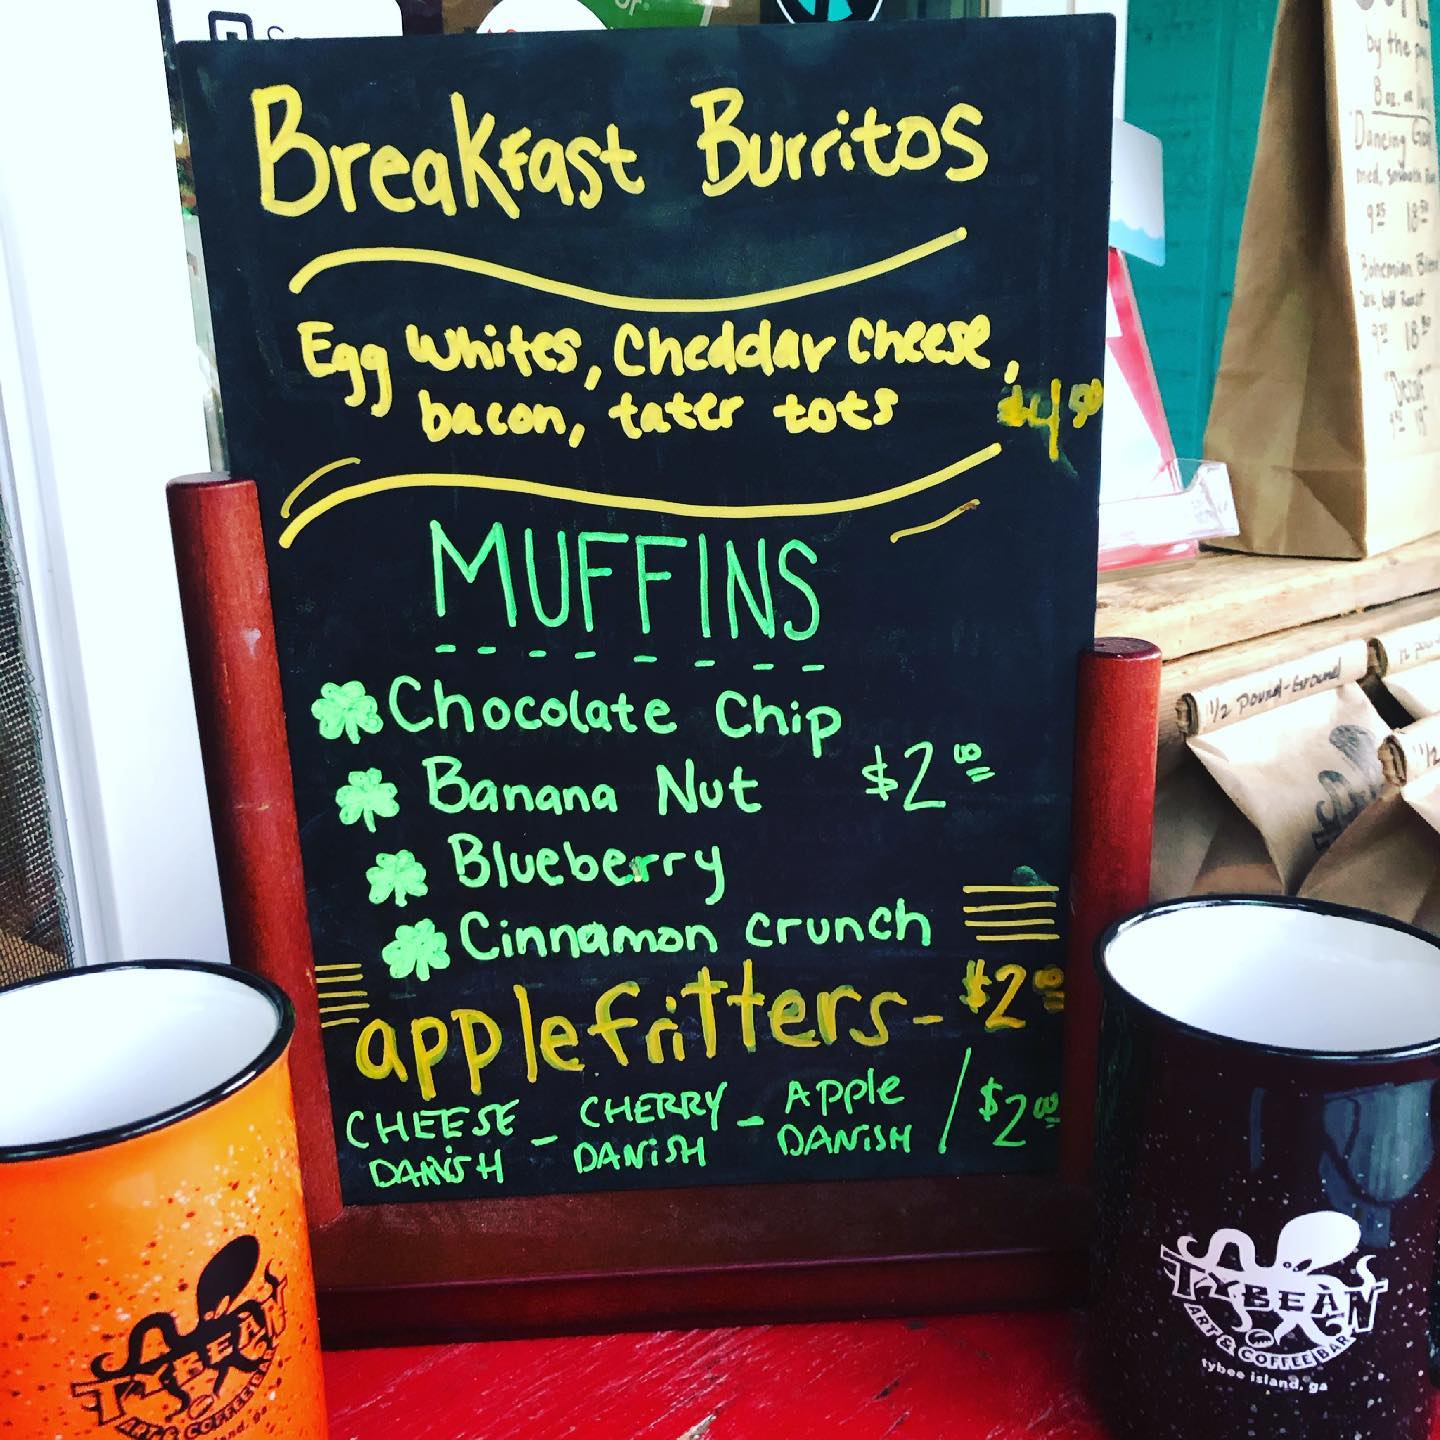 Breakfast Burritos
Egg Whites, Cheddar Cheese,
bacon, tater tots $4/50
MUFFINS
Chocolate Chip
Banana Nut $2.00
Blueberry
Cinnamon crunch
apple fritters - $2.00
CHEESE DANISH - CHERRY DANISH - APPle DANiSH / $2.00
TYBEAN
ART & COFFEE BAR
TYBEAN
ART & COFFEE BAR
tybee island, ga
by the
8 oz.
Dancing
med, smooth
9.25 18.50
Bohemian Blend
9.25 18.50
"Decaf"
1/2 pound-Ground